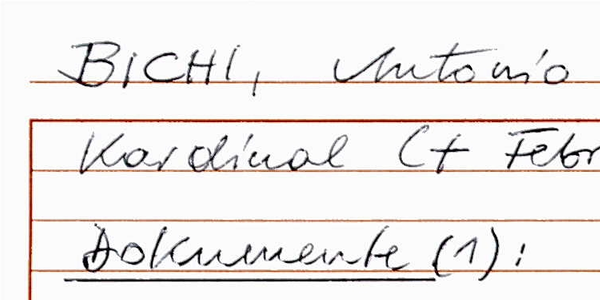 BICHI, Antonio
Kardinal († Febr
Dokumente (1):